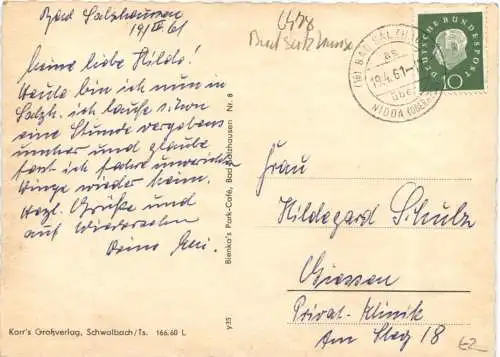 Bad Salzhausen
19/IV. 61
Meine liebe Hilde!
Heute bin ich nun in
Salzh. ich laufe schon
eine Stunde vergebens
umher und glaube
fast ich fahre unverrichteter
Dinge wieder heim.
Herzl. Grüße und
auf Wiedersehen
Deine
Bad Salzhausen
DEUTSCHE BUNDESPOST
10
(16) BAD SALZH
19.4.61
NIDDA
Frau
Hildegard Schulz
Giessen
Privat-Klinik
Am Steg 18
Blenka's Park-Café, Bad Salzhausen Nr. 8
y35
Korr's Großverlag, Schwalbach/Ts. 166.60 L